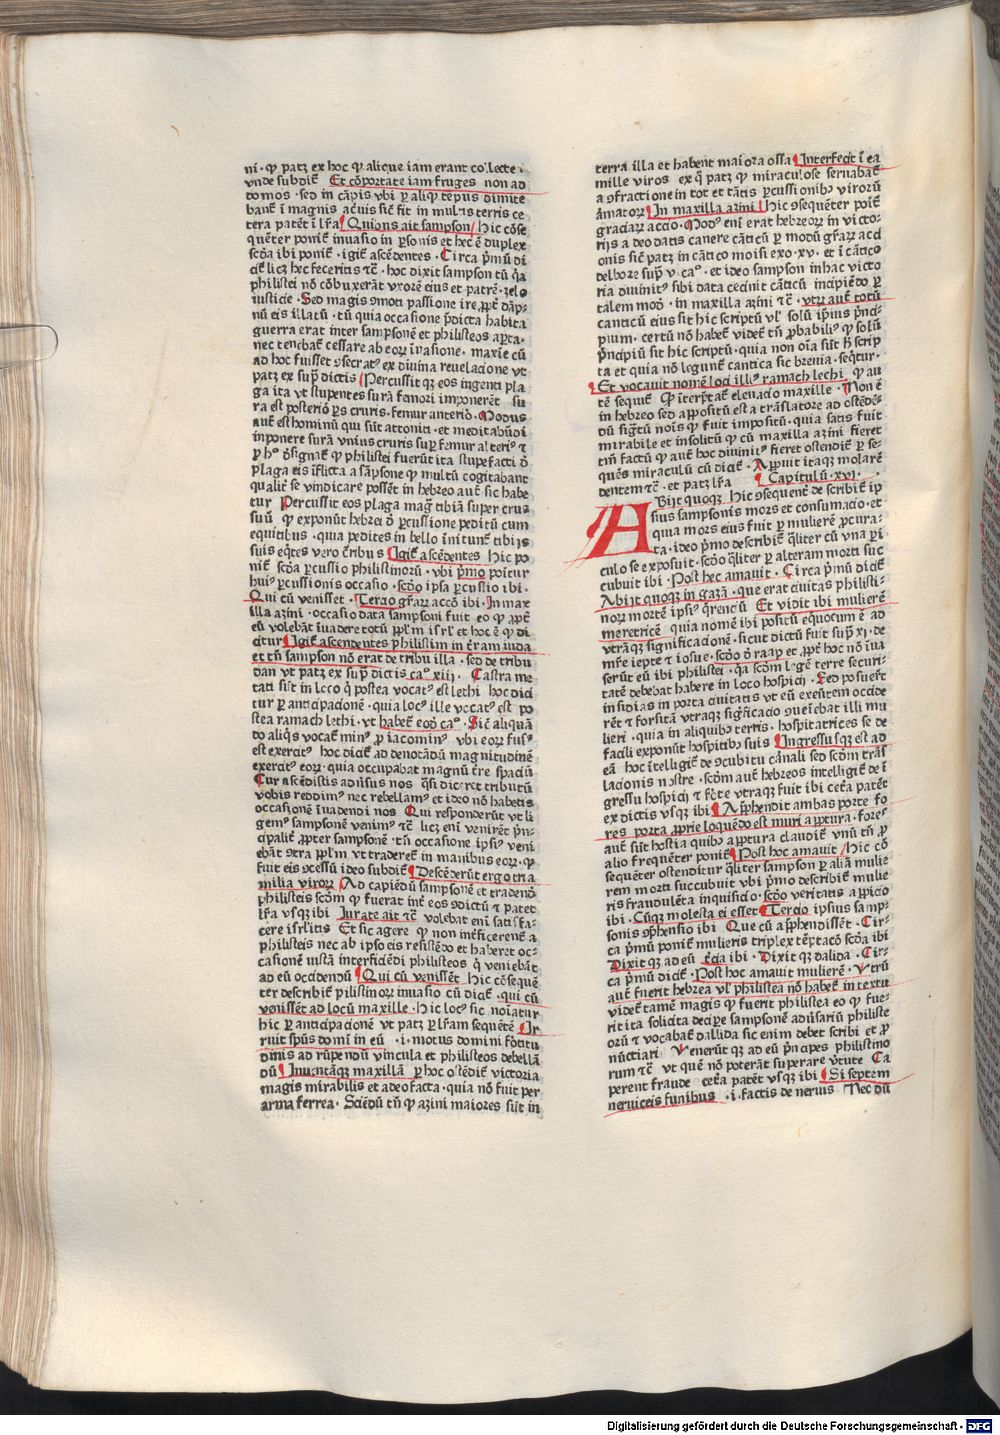 ni · qꝫ patꝫ ex hoc qꝫ alique iam erant collecte ·
vnde subdit̄ Et cōportate iam fruges non ad
domos · sed in cāpis vbi ꝑ aliq̄ tēpus dimitte
bant̄ ī magnis aceruis sic̄ fit in multis terris ce
tera patēt ī lr̄a Quibus ait sampson Hic cōse
quēter ponit̄ inuasio in ꝑsonis et hec ē duplex
scd̄a ibi ponit̄ · igit̄ ascēdentes · Circa pͥmū di
cit̄ licꝫ hec feceritis ⁊c̄ · hoc dixit sampson tū q̄a
philistei nō cōbuxerāt vxorē eius et patrē · zelo
iusticie · Sed magis ꝯmoti passione ire ꝓpt̄ dāp̄
nū eis illatū · tū quia occasione p̄dicta habita
guerra erat inter sampsonē et philisteos aꝑta ·
nec tenebat̄ cessare ab eoꝝ īuasione · maxīe cū
ad hoc fuisset ꝯsecratꝰ ex diuina reuelacione vt
patꝫ ex supͣ dictis Percussit qꝫ eos ingenti pla
ga ita vt stupentes surā femori imponerēt su
ra est posterioꝰ ꝑs cruris · femur anterioꝰ · Modus
aut̄ est hominū qui sūt attoniti · et meditabūdi
inponere surā vnius cruris suꝑ femur alteriꝰ ⁊
ꝑ hͦ ꝯsignat̄ qꝫ philistei fuerūt ita stupefacti d̄
plaga eis īflicta a sāpsone qꝫ multū cogitabant
qualit̄ se vindicare possēt in hebreo aut̄ sic habe
tur Percussit eos plaga maḡ tibiā super crus
suū qꝫ exponūt hebrei d̄ ꝑcussione peditū cum
equitibus · quia pedites in bello īnitunt̄ tibijs
suis eq̄tes vero crͥribus Igit̄ ascēdentes Hic po
nit̄ scd̄a ꝑcussio philistinoꝝ · vbi pͥmo ponit̄ur
huiꝰ ꝑcussionis occasio · scd̄o ipsa ꝑcussio ibi ·
Qui cū venisset · Tercio gr̄aꝝ accō ibi · In max
illa azini · occasio data sampsoni fuit eo qꝫ ꝓpt̄
eū volebāt īuadere totū ppl̄m isrl̄ et hoc ē qꝫ di
citur Igit̄ ascendentes philistim in t̄ram iuda
et tn̄ sampson nō erat de tribu illa · sed de tribu
dan vt patꝫ ex supͣ dictis caͦ xiij · Castra me
tati sūt in loco q̄ postea vocatꝰ est lethi hoc dici
tur ꝑ anticipacionē · quia locꝰ ille vocatꝰ est po
stea ramach lethi · vt habet̄ eod̄ caͦ · Sic̄ aliquā
do aliqͥs vocat̄ minꝰ ꝓ iacominꝰ vbi eoꝝ fusꝰ
est exercitꝰ hoc dicit̄ ad denotādū magnitudinē
exercitꝰ eoꝝ · quia occupabat magnū t̄re spaciū
Cur ascēdistis aduͥsus nos qͣsi dic̄et tributū
vobis reddimꝰ nec rebellamꝰ et ideo nō habetis
occasionē īuadendi nos Qui responderūt vt li
gemꝰ sampsonē venimꝰ ⁊c̄ licꝫ enī venirēt pͥn
cipalit̄ ꝓpter sampsonē · tn̄ occasione ipsiꝰ veni
ebāt ꝯtra ppl̄m vt traderet̄ in manibus eoꝝ · qꝫ
fuit eis ꝯcessū ideo subdit̄ Descēderūt ergo tria
milia viroꝝ Ad capiēdū sampsonē et tradend̄
philisteis scd̄m qꝫ fuerat int̄ eos ꝯdictū ⁊ patet
lr̄a vsqꝫ ibi Iurate ait ⁊c̄ volebat enī satisfa ·
cere isrl̄itis Et sic agere qꝫ non int̄ficerent̄ a
philisteis nec ab ipso eis resistēdo et haberet oc ·
casionē iustā interficiēdi philisteos q̄ veniebāt
ad eū occidendū Qui cū venissēt Hic cōsequē
ter describit̄ pilistinoꝝ inuasio cū dicit̄ · qui cū
venissēt ad locū maxille · Hic locꝰ sic noīatur
hic ꝑ anticipacionē vt patꝫ ꝑ lr̄am sequētē Ir
ruit spūs domī in eū · i · motus domini fortitu
dinis ad rūpendū vincula et philisteos debellā
dū Inuentāqꝫ maxillā ꝑ hoc ostēdit̄ victoria
magis mirabilis et a deo facta · quia nō fuit per
arma ferrea · Sciēdū tn̄ qꝫ azini maiores sūt in
terra illa et habent maiora ossa Interfecit ī ea
mille viros ex q̄ patꝫ qꝫ miraculose seruabat̄
a ꝯfractione in tot et tātis ꝑcussionibꝰ viroꝝ
armatoꝝ In maxilla azini Hic ꝯsequēter poīt̄
graciaꝝ accio · Modꝰ enī erat hebreoꝝ in victo ·
rijs a deo datis canere cāticū ꝑ modū gr̄aꝝ acci
onis sic̄ patꝫ in cātico moisi exo · xv · et ī cātico
delbore supͣ v caͦ · et ideo sampson in hac victo
ria diuinitꝰ sibi data cecinit cāticū incipiēdo ꝑ
talem modͦ · in maxilla azini ⁊c̄ · vtꝝ aut̄ totū
canticū eius sit hic scriptū vl̓ solū ipsius pͥnci ·
pium · certū nō habet̄ videt̄ tn̄ ꝓbabiliꝰ qꝫ solū
pͥncipiū sit hic scriptū · quia non oīa sūt h̄ scrip
ta et quia nō legunt̄ cantica sic breuia · seqͥtur ·
Et vocauit nomē loci illiꝰ ramach lechi qꝫ au
tē sequit̄ Qꝫ interp̄tat̄ eleuacio maxille · Non ē
in hebreo sed appositū est a trāslatore ad ostēdē ·
dū signū noīs qꝫ fuit impositū · quia satis fuit
mirabile et insolitū qꝫ cū maxilla azini fieret
tm̄ factū qꝫ aut̄ hoc diuinitꝰ fieret ostendit̄ ꝑ se ·
quēs miraculū cū dicit̄ · Apꝑuit itaqꝫ molarē
dentem ⁊c̄ · et patꝫ lr̄a Capitulū · xvi ·
ABijt quoqꝫ Hic ꝯsequent̄ describit̄ ip
sius sampsonis mors et consumacio · et
quia mors eius fuit ꝑ mulierē ꝓcura ·
ta · ideo pͥmo describit̄ qͣliter cū vna ꝑi
culo se exposuit · scd̄o qͣliter ꝑ alteram morti suc
cubuit ibi · Post hec amauit · Circa pͥmū dicit̄
Abijt quoqꝫ in gazā · que erat ciuitas philisti ·
noꝝ mortē ipsiꝰ q̄renciū Et vidit ibi mulierē
meretricē quia nomē ibi positū equocum ē ad
vtrāqꝫ significacionē · sicut dictū fuit supͣ xi · de
mr̄e iepte ⁊ iosue · scd̄o d̄ raap et ꝓpt̄ hoc nō īua
serūt eū ibi philistei · q̄a scd̄m legē terre securi ·
tatē debebat habere in loco hospicij · Sed posuer̄t
insidias in porta ciuitatis vt eū exeūtem occide
rēt ⁊ forsitā vtraqꝫ siḡficacio ꝯueīebat illi mu
lieri · quia in aliquibꝰ terris · hospitatrices se de
facili exponūt hospitibꝰ suis Ingressusqꝫ est ad
eā hoc īt̄elligit̄ de ꝯcubitu carnali sed scd̄m trās
lacionis nostre · scd̄m aut̄ hebreos intelligit̄ de ī
gressu hospicij ⁊ forte vtraqꝫ fuit ibi cet̄a patēt
ex dictis vsqꝫ ibi Appͣhendit ambas porte fo
res porta ꝓprie loquēdo est muri aꝑtura · fores
aut̄ sūt hostia quibꝰ aꝑtura claudit̄ vnū tn̄ ꝓ
alio frequēter ponit̄ Post hoc amauit Hic cō
sequēter ostenditur qͣliter sampson ꝑ aliā mulie
rem morti succubuit vbi pͥmo describit̄ mulie
ris fraudulēta inquisicio · scd̄o veritatis aꝑicio
ibi · Cūqꝫ molesta ei esset Tercio ipsius samp ·
sonis ꝯprehensio ibi Que cū apprehendisset · Cir ·
ca pͥmū ponit̄ mulieris triplex tēptacō scd̄a ibi
Dixit qꝫ ad eū t̄cia ibi · Dixit qꝫ dalida · Cir ·
ca pͥmū dicit̄ · Post hoc amauit mulierē · Vtrū
aut̄ fuerit hebrea vl̓ philistea nō habet̄ in textu
videt̄ tamē magis qꝫ fuerit philistea eo qꝫ fue ·
rit ita solicita decipe sampsonē aduͥsariū philiste
oꝝ ⁊ vocabat̄ dallida sic enim debet scribi et ꝓ
nūctiari Venerūt qꝫ ad eū pͥncipes philistino
rum ⁊c̄ vt quē nō poterāt superare vͥtute Ca
perent fraude cet̄a patēt vsqꝫ ibi Si septem
neruiceis funibus · i · factis de neruis Nec dū
Digitalisierung gefördert durch die Deutsche Forschungsgemeinschaft · DFG